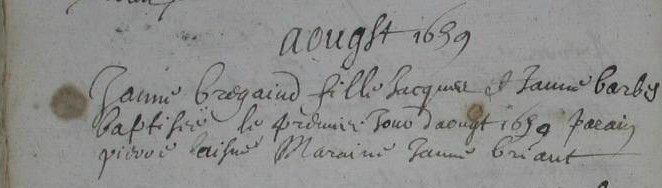 aougst 1659
Janne bregaind fille Jacques et Janne barbes
baptisée le premier Jour daougst 1659 parain
pierre laisne Maraine Janne briant